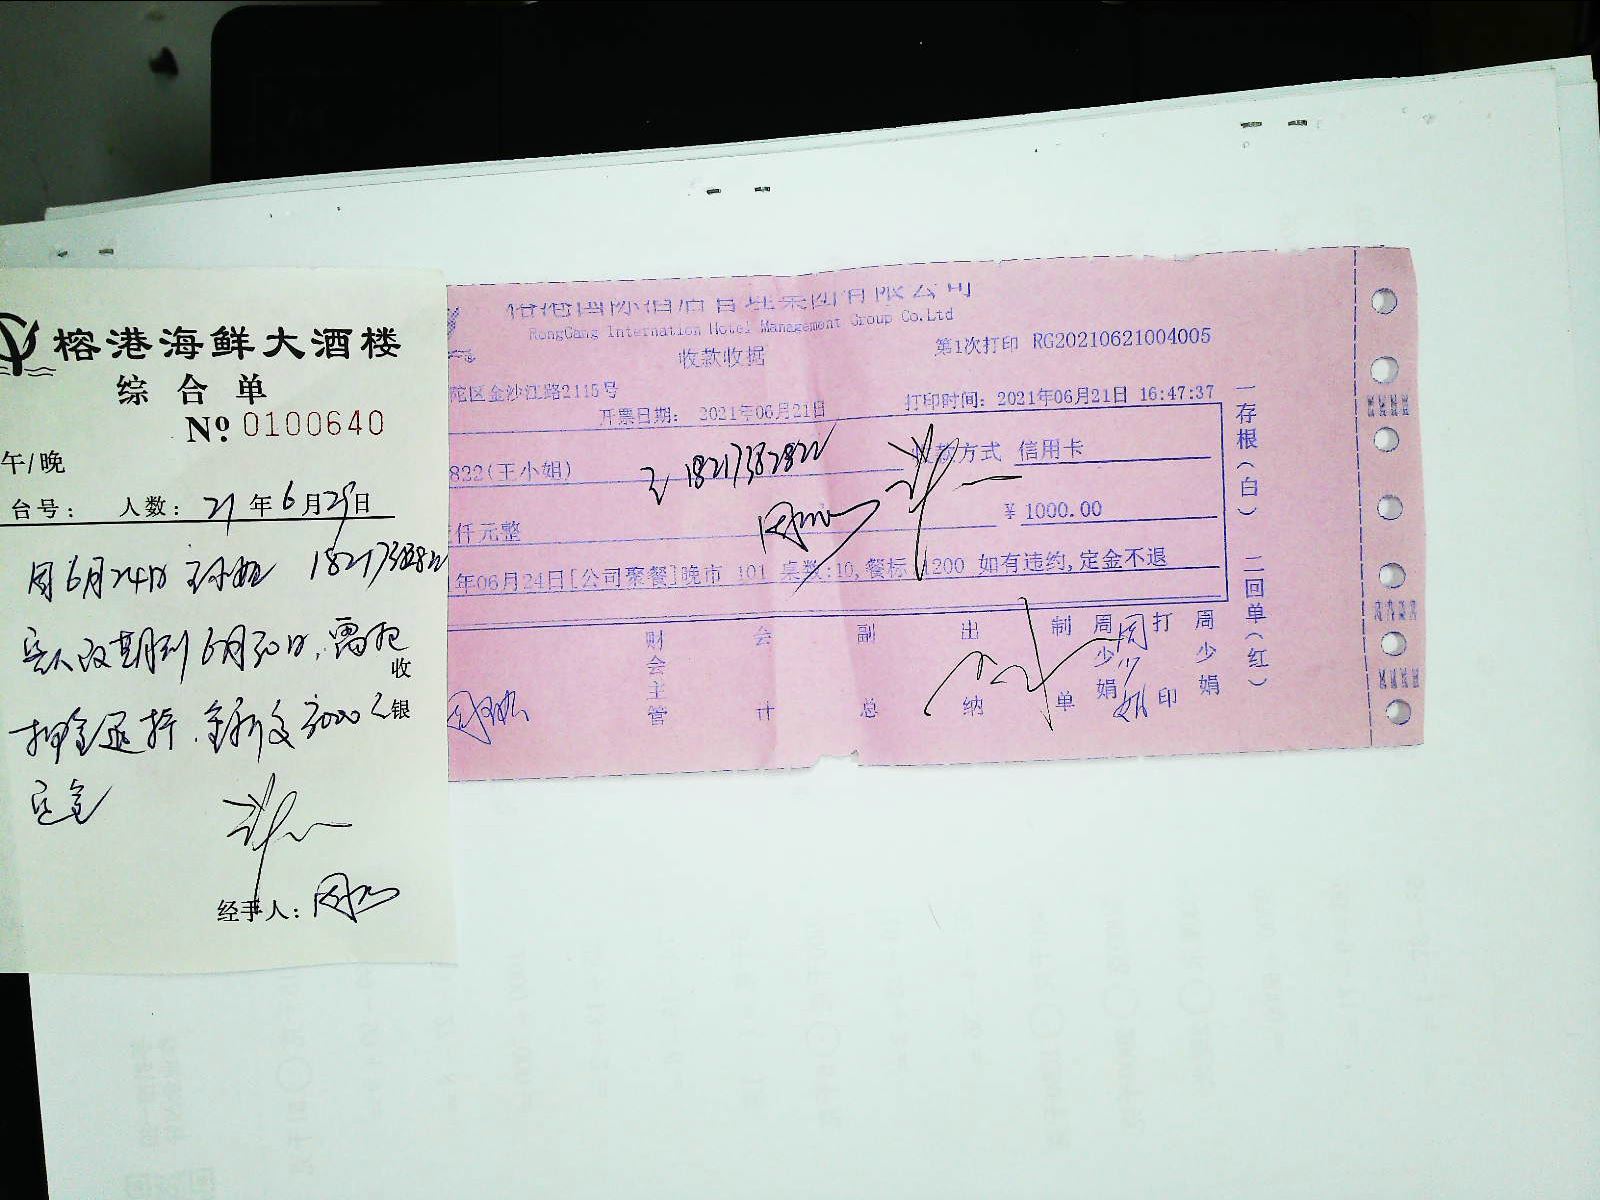 榕港海鲜大酒楼
综合单
No 0100640
午/晚
台号: 人数: 21年6月29日
因6月24日王小姐 18217382822
客人改期到6月30日,需把
收
押金退掉.重新交3000元
银
定金
经手人:
榕港国际酒店管理集团有限公司
RongGang Internation Hotel Management Group Co.Ltd
收款收据
第1次打印 RG20210621004005
陀区金沙江路2115号
开票日期: 2021年06月21日
打印时间: 2021年06月21日 16:47:37
822(王小姐)
18217382822
收款方式 信用卡
仟元整
¥ 1000.00
年06月24日[公司聚餐]晚市 101 桌数:10,餐标 1200 如有违约,定金不退
财会主管
会计
副总
出纳
制单
周少娟
周少娟
打印
周少娟
一存根(白) 二回单(红)